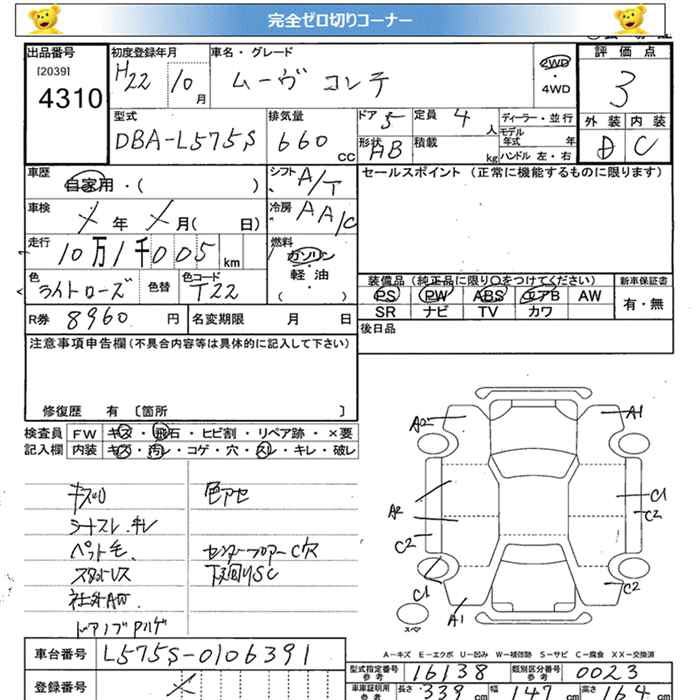 完全ゼロ切りコーナー
出品番号 初度登録年月 車名・グレード 評価点
[2039] 4310 H22 10月 ムーヴ コンテ 2WD・4WD 3
型式 排気量 ドア 5 定員 4人 ディーラー・並行 外装 内装
DBA-L575S 660cc 形状 AB 積載 kg モデル年式 年 ハンドル 左・右 D C
車歴 自家用・( ) シフト A/T セールスポイント (正常に機能するものに限ります)
車検 年 月( 日) 冷房 AA/C
走行 10万1千005km 燃料 ガソリン・軽油・( )
色 ライトローズ 色替 色コード T22
装備品 (純正品に限り○をつけてください) 新車保証書
PS PW ABS エアB AW 有・無
SR ナビ TV カワ
R券 8960円 名変期限 月 日 後日品
注意事項申告欄(不具合内容等は具体的に記入して下さい)
修復歴 有 〔箇所 〕
検査員 FW キズ・飛石・ヒビ割・リペア跡・×要
記入欄 内装 キズ・汚レ・コゲ・穴・スレ・キレ・破レ
色アセ
シートスレ・キレ
ペット毛 センターフロアーC穴
スタットレス 下回りSC
社外AW
A2 A1
A2 C1 C2
C2
C1 C2
A1
スペア
A-キズ E-エクボ U-凹み W-補修跡 S-サビ C-腐食 XX-交換済
車台番号 L575S-0106391
型式指定番号 参考 16138 類別区分番号 参考 0023
登録番号 車庫証明用 参考 長さ 339cm 幅 147cm 高さ 164cm